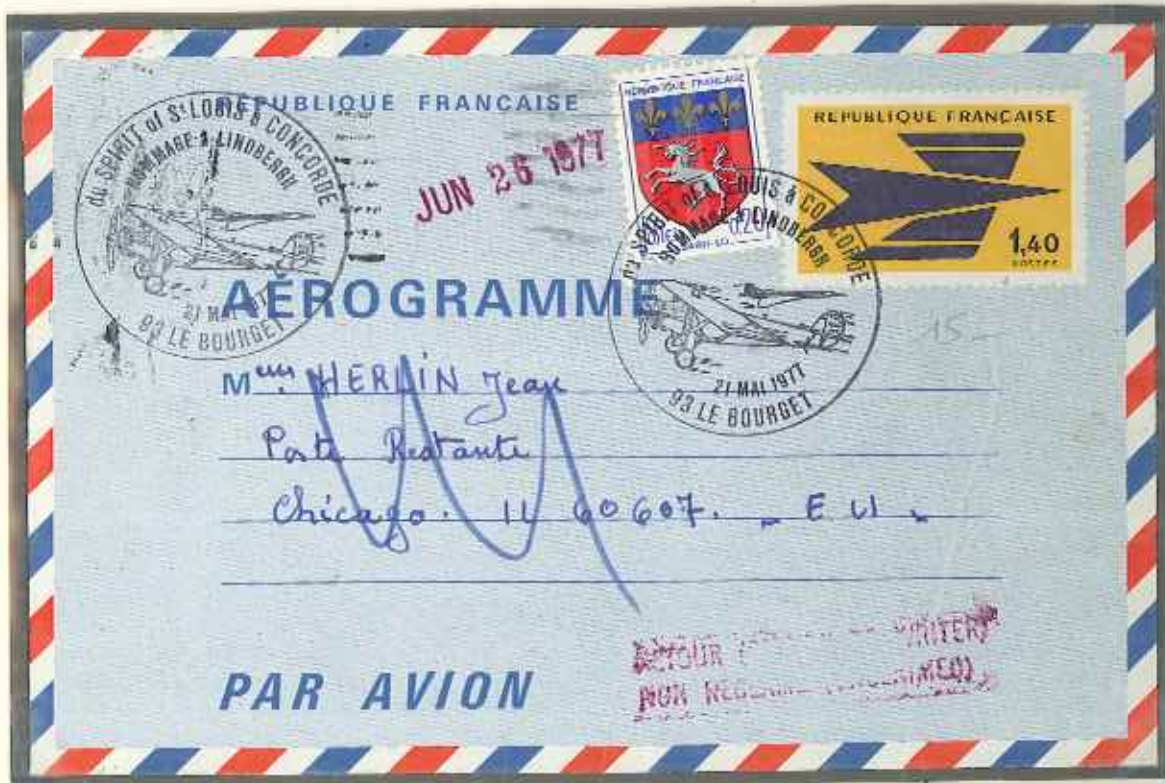 RÉPUBLIQUE FRANÇAISE
du SPIRIT of St LOUIS à CONCORDE
HOMMAGE à LINDBERGH
21 MAI 1977
93 LE BOURGET
JUN 26 1977
REPUBLIQUE FRANCAISE
0,20
REPUBLIQUE FRANÇAISE
1,40
POSTES
du SPIRIT of St LOUIS à CONCORDE
HOMMAGE à LINDBERGH
21 MAI 1977
93 LE BOURGET
15-
AÉROGRAMME
HERLIN Jean
Poste Restante
Chicago. IL 60607. - E U -
PAR AVION
RETOUR
NON RECLAME (UNCLAIMED)